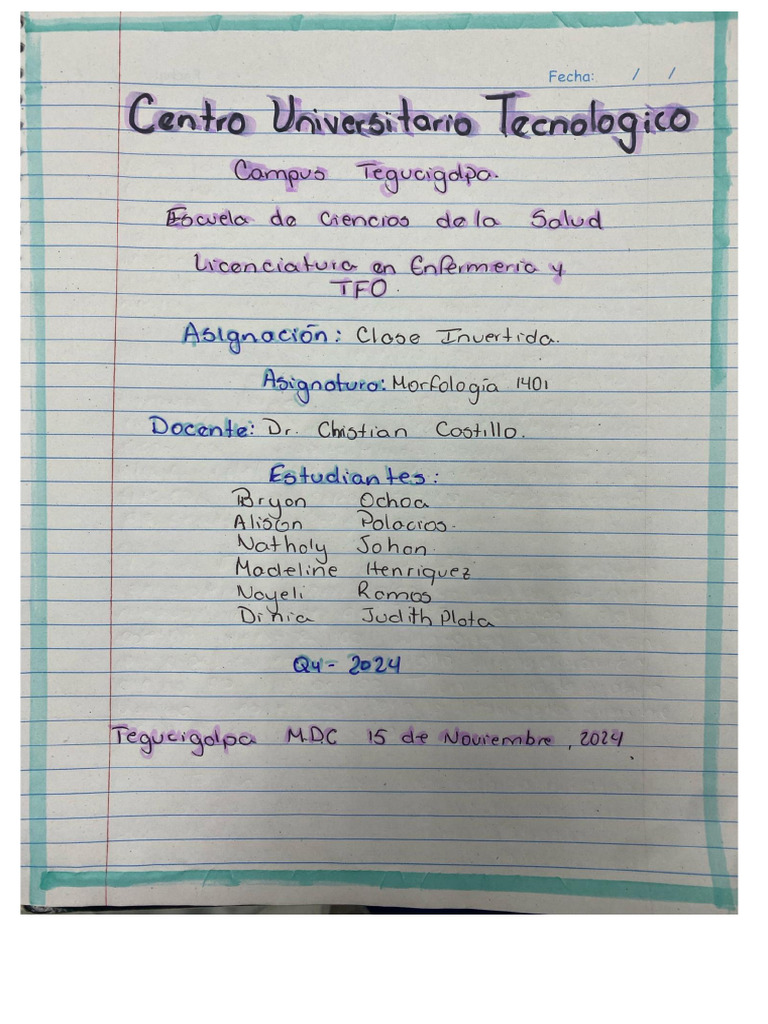 Fecha: / /
Centro Universitario Tecnologico
Campus Tegucigalpa.
Escuela de Ciencias de la Salud
Licenciatura en Enfermeria y
TFO.
Asignación: Clase Invertida.
Asignatura: Morfología 1401
Docente: Dr. Christian Costillo.
Estudiantes:
Bryan Ochoa
Alison Palacios.
Nathaly Johan
Madeline Henriquez
Nayeli Ramos
Dinia Judith Plata
Q4 - 2024
Tegucigalpa M.D.C 15 de Noviembre, 2024.